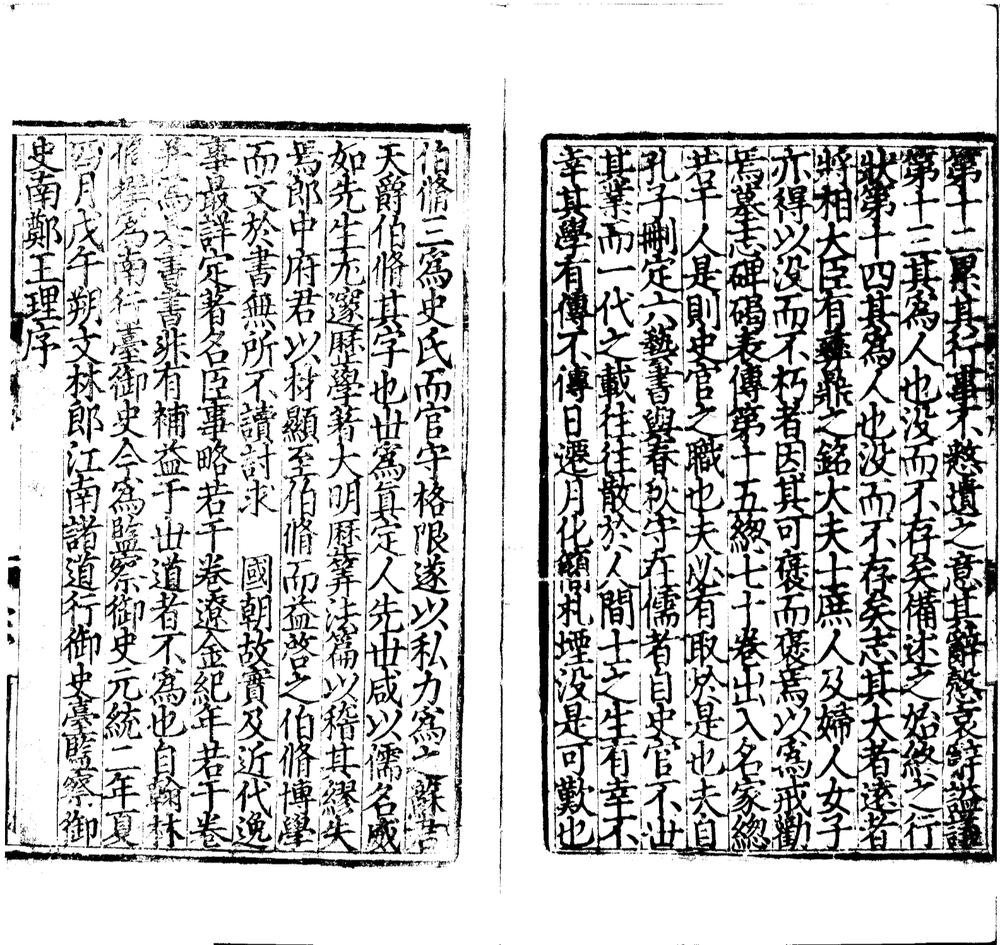 第十二累其行事不憗遺之意其辭慤哀辭諡議
第十三其爲人也没而不存矣備述之始終之行
狀第十四其爲人也没而不存矣志其大者遠者
將相大臣有彝鼎之銘大夫士庶人及婦人女子
亦得以没而不朽者因其可褒而褒焉以爲戒勸
焉墓志碑碣表傳第十五緫七十卷出入名家緫
若干人是則史官之職也夫必有取於是也夫自
孔子刪定六藝書與春秋守在儒者自史官不世
其業而一代之載往往散於人間士之生有幸不
幸其學有傳不傳日遷月化簡札堙没是可歎也
伯脩三爲史氏而官守格限遂以私力爲之蘇
天爵伯脩其字也世爲真定人先世咸以儒名威
如先生尤邃歷學著大明歷筭法篇以稽其繆失
焉郎中府君以材顯至伯脩而益啓之伯脩博學
而文於書無所不讀討求　國朝故實及近代逸
事最詳定著名臣事略若干卷遼金紀年若干卷
并爲六書書非有補益于世道者不爲也自翰林
脩撰爲南行臺御史今爲監察御史元統二年夏
四月戊午朔文林郎江南諸道行御史臺監察御
史南鄭王理序